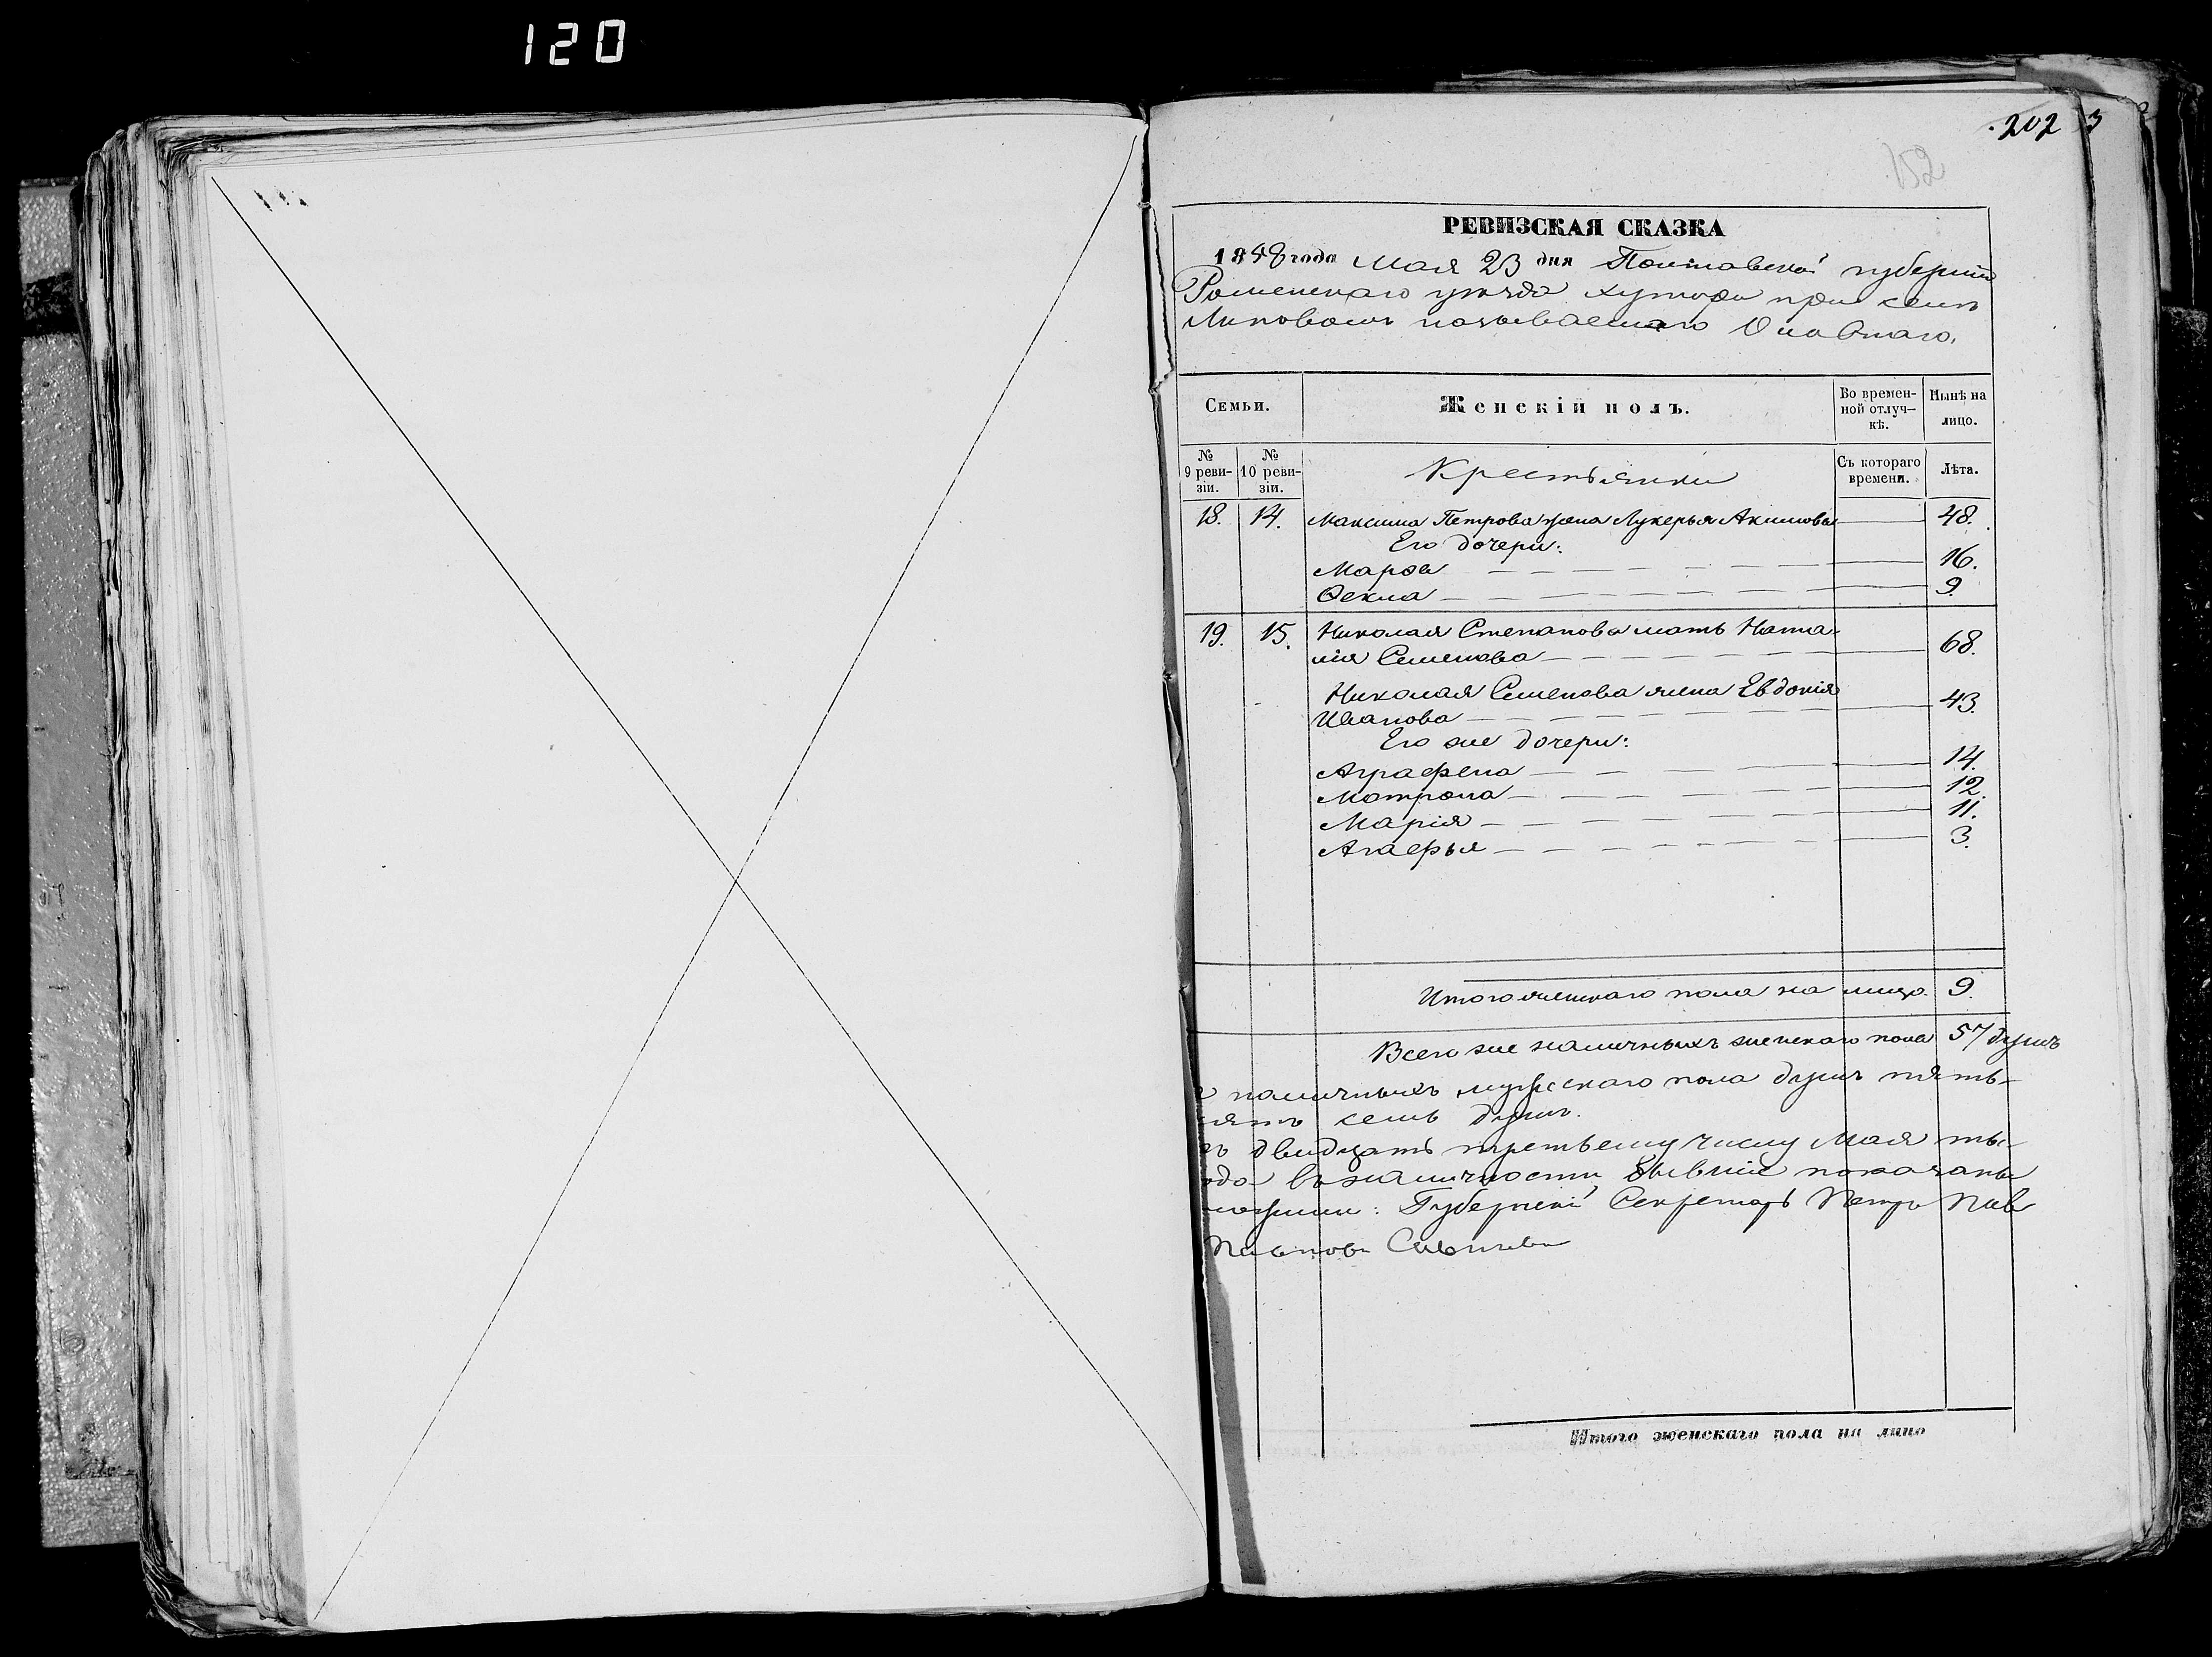 120
202 3
152
РЕВИЗСКАЯ СКАЗКА
1858 года Мая 23 дня Полтавской губерніи
Роменскаго уѣзда хутора при селѣ
Липовомъ называемаго
Семьи. Женскій полъ. Во времен-ной отлуч-кѣ. Нынѣ на лицо.
№ 9 реви-зіи. № 10 реви-зіи. Крестьянки Съ котораго времени. Лѣта.
18. 14. Максима Петрова жена Лукерья Акимова 48.
Его дочери:
Марѳа 16.
Ѳекла 9.
19. 15. Николая Степанова мать Ната-
лія Семенова 68.
Николая Семенова жена Евдокія
Иванова 43.
Его же дочери:
Аграфена 14.
Матрона 12.
Марія 11.
Агафья 3.
Итого женскаго пола на лицо. 9.
Всего же наличныхъ женскаго пола 57 душъ
наличныхъ мужскаго пола душъ пять-
сятъ семь душъ.
двадцать третьему числу Мая ты-
ода въ наличности бывшіе показаны
Губернскій Секретарь Петръ Пав
Итого женскаго пола на лицо